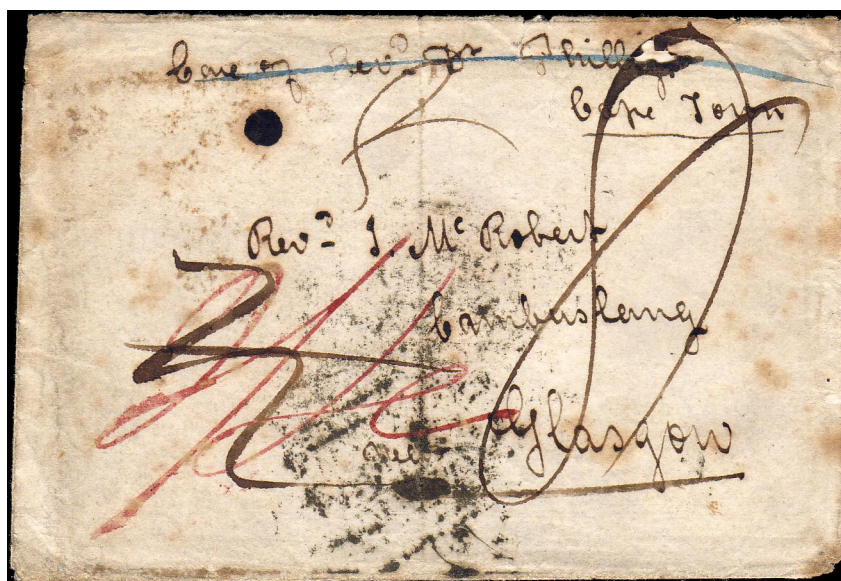 Care of Revd Dr Phillip
Cape Town
Revd J. Mc Robert
Cambuslang
near Glasgow